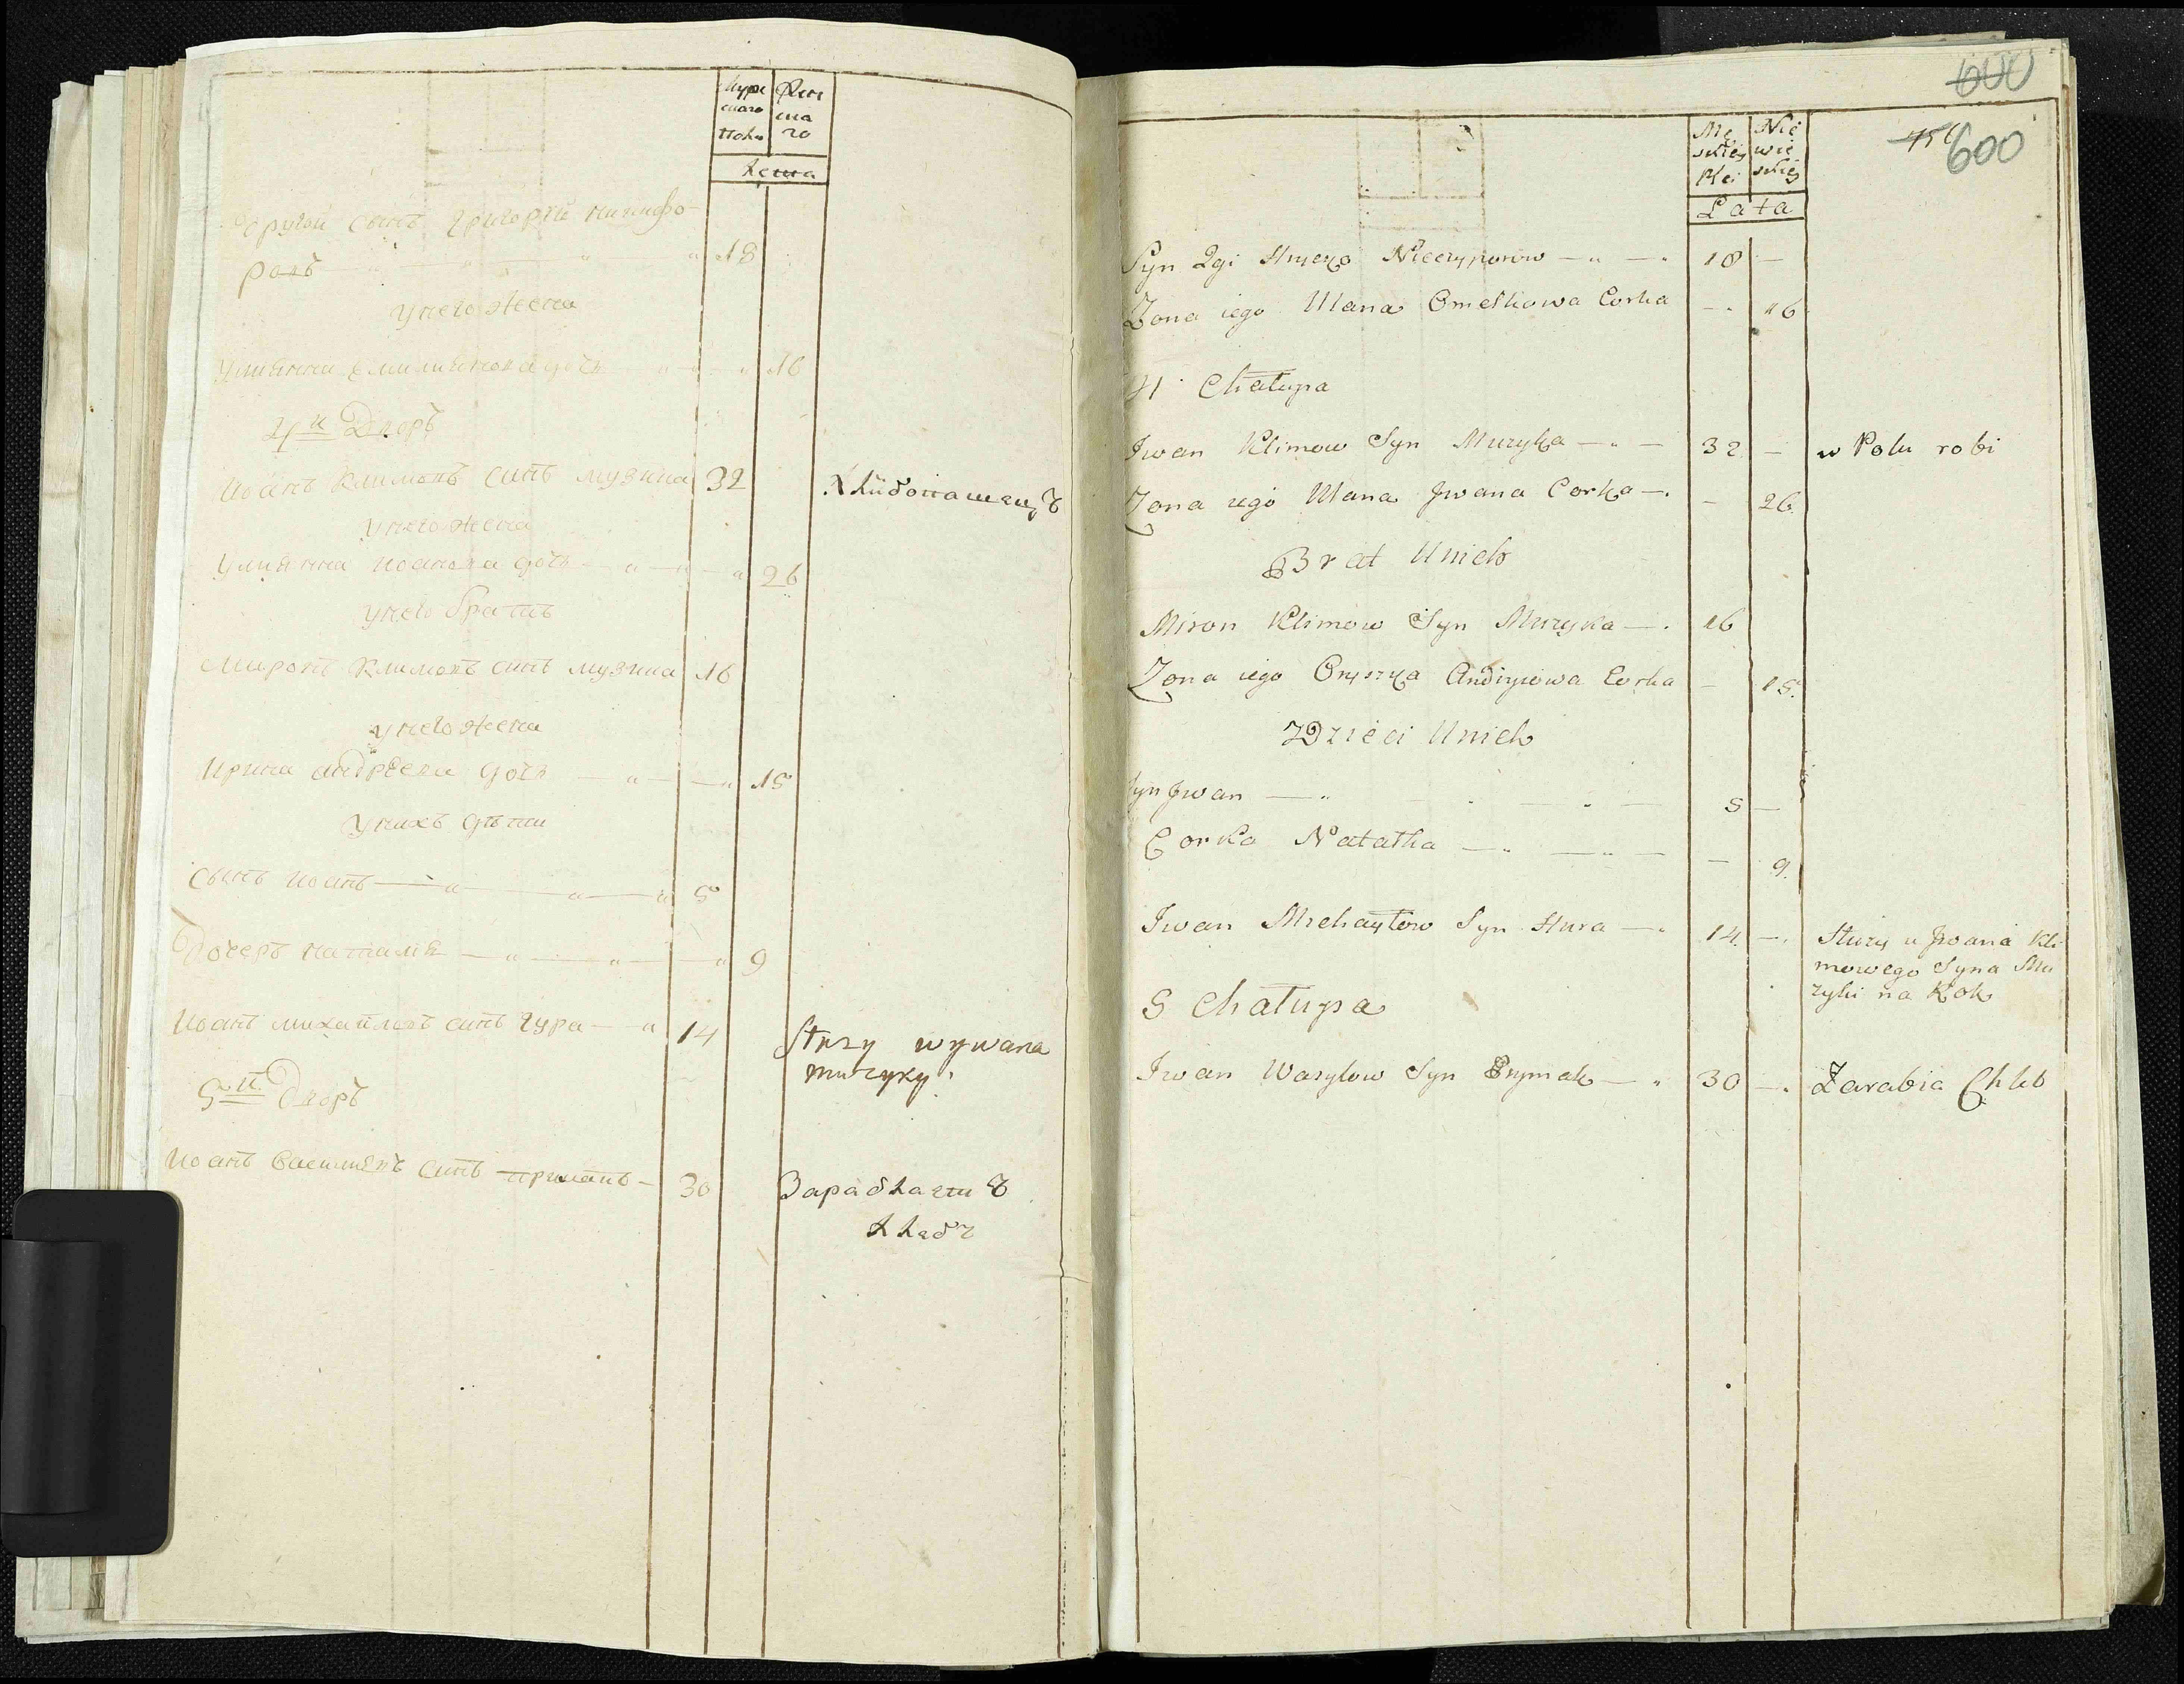 Муже
скаго
пола
Жен
ска
го
Лета
Другой сынъ Григорей Никифо-
ровъ 18
У него жена
Улиянна Емилиянова дочь 16
4й Дворъ
Иоанъ Климовъ синъ Музика 32 Хлѣбопашецъ
У него жена
Улиянна Иоанова дочь 26
У него братъ
Миронъ Климовъ синъ Музика 16
У него жена
Ирина Андрѣева дочь 15
У нихъ дѣти
Сынъ Иоанъ 5
Дочеръ Наталія 9
Иоанъ Михайловъ синъ Гура 14 Służy w ywana
muzyky
5й Дворъ
Иоанъ Василиевъ синъ Примакъ 30 Зарабляетъ
хлебъ
600
Mę
skiey
Płci
Nie
wie
skiey
Lata
600
Syn 2gi Hryćko Nieczyporow 18 —
Zona iego Ulana Omelkowa Corka — 16
4 Chałupa
Iwan Klimow Syn Muzyka 32 — w Polu robi
Zona iego Ulana Jwana Corka — 26
Brat Unich
Miron Klimow Syn Muzyka 16
Zona iego Oryszka Andryiowa Corka — 15
Dzieci Unich
Syn Jwan 5 —
Corka Natałka — 9
Iwan Michayłow Syn Hura 14 — Służy u Jwana Kli
mowego Syna Mu
zyki na Rok
5 Chałupa
Iwan Wasylow Syn Prymak 30 — Zarabia Chleb